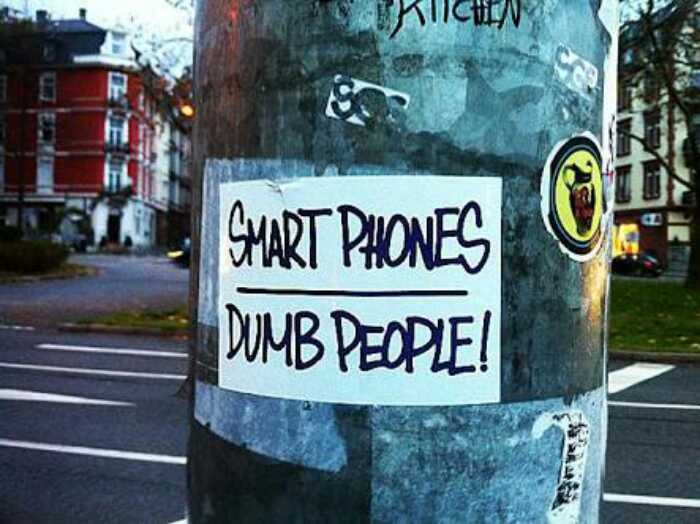 KITCHEN
SMART PHONES
DUMB PEOPLE!